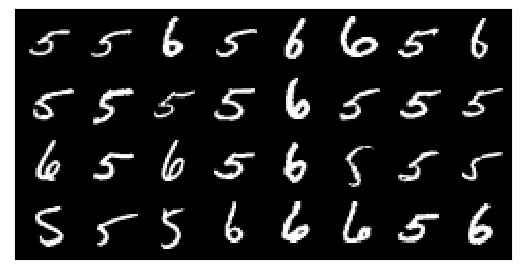 5 5 6 5 6 6 5 6
5 5 5 5 6 5 5 5
6 5 6 5 6 5 5 5
5 5 5 6 6 6 5 6